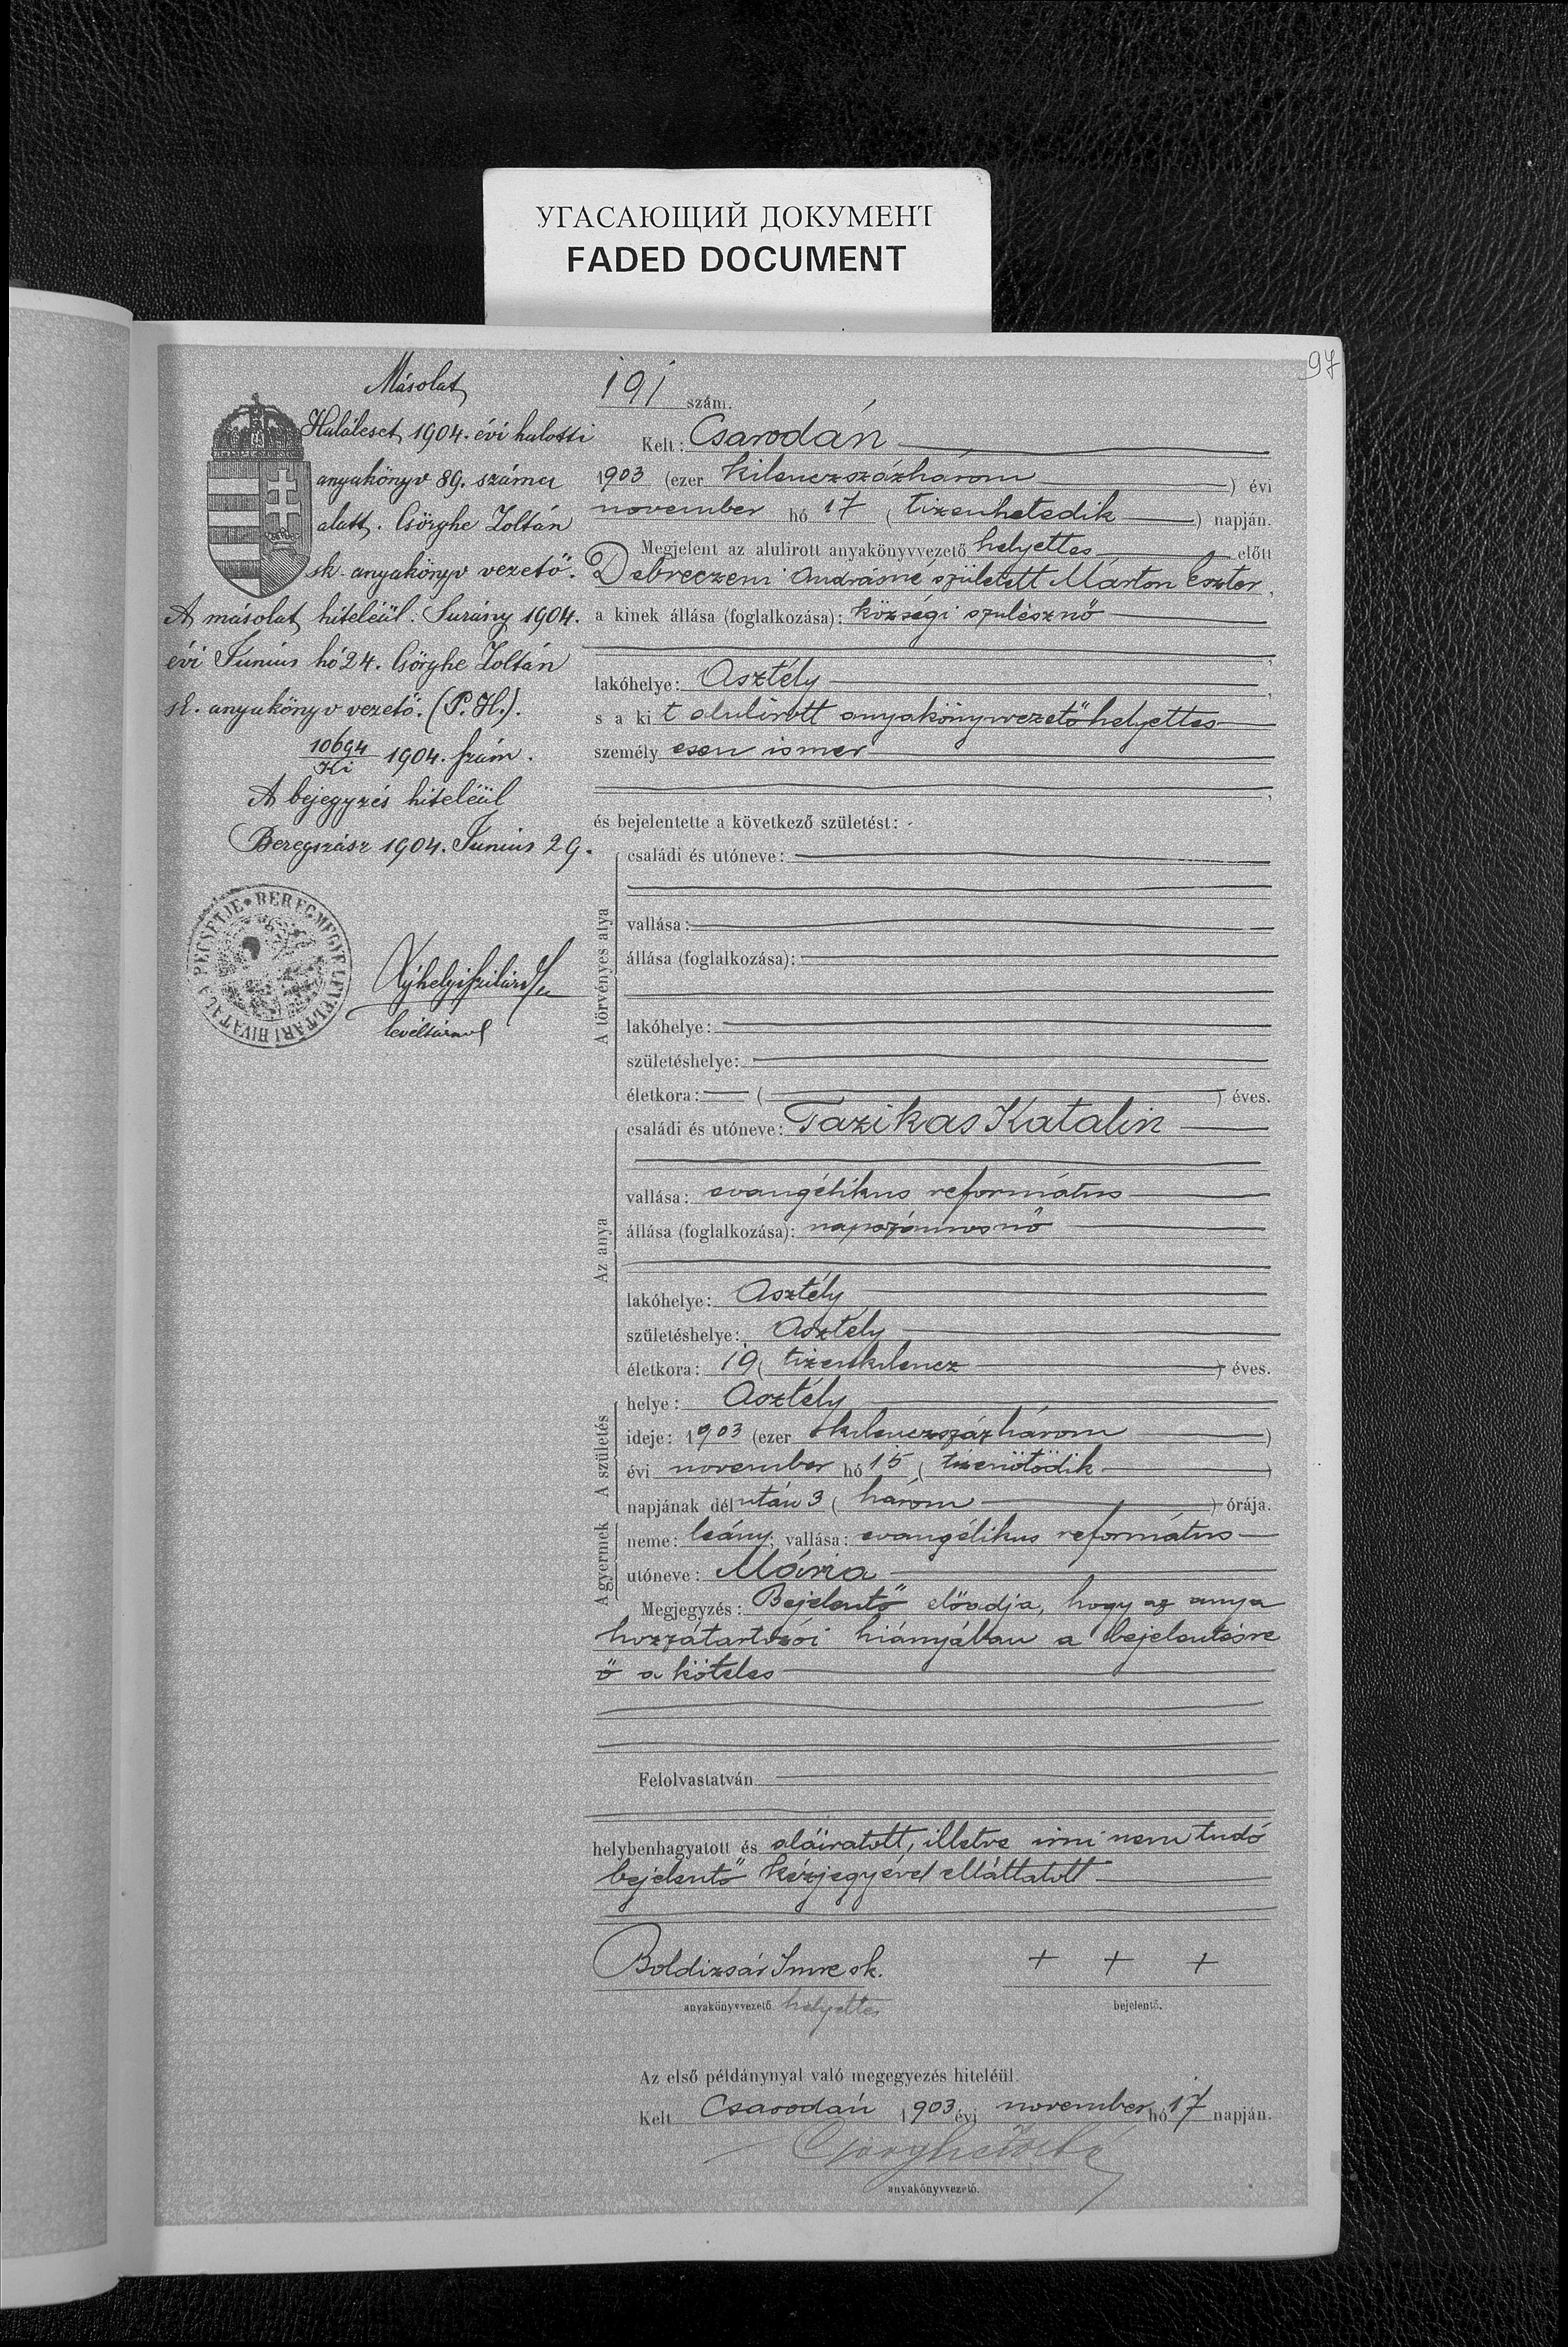 УГАСАЮЩИЙ ДОКУМЕНТ
FADED DOCUMENT
97
Másolat
Haláleset, 1904. évi halotti
anyakönyv 89. száma
alatt. Csörghe Zoltán
sk. anyakönyv vezető.
A másolat hiteléül. Surány 1904.
évi Június hó 24. Csörghe Zoltán
sk. anyakönyv vezető. (P. H.).
10694
Ki 1904. szám.
A bejegyzés hiteléül
Beregszász 1904. Június 29.
BEREGMEGYE LEVÉLTÁRI HIVATALA PECSÉTJE
levéltárnok
191 szám.
Kelt: Csarodán
1903 (ezer kilenczszázhárom) évi
november hó 17 (tizenhetedik) napján.
Megjelent az alulirott anyakönyvvezető helyettes előtt
Debreczeni Andrásné született Márton Eszter,
a kinek állása (foglalkozása): községi szülésznő
lakóhelye: Asztély,
s a kit alulirott anyakönyvvezetőhelyettes
személyesen ismer
és bejelentette a következő születést:
A törvényes atya
családi és utóneve:
vallása:
állása (foglalkozása):
lakóhelye:
születéshelye:
életkora: ( ) éves.
Az anya
családi és utóneve: Tazikas Katalin
vallása: evangélikus református
állása (foglalkozása): napszámosnő
lakóhelye: Asztély
születéshelye: Asztély
életkora: 19 (tizenkilencz) éves.
A születés
helye: Asztély
ideje: 1903 (ezer kilenczszázhárom)
évi november hó 15 (tizenötödik)
napjának délután 3 (három) órája.
A gyermek
neme: leány; vallása: evangélikus református
utóneve: Mária
Megjegyzés: Bejelentő előadja, hogy az anya
hozzátartozói hiányában a bejelentésre
ő a köteles
Felolvastatván
helybenhagyatott és aláiratott, illetve irni nem tudó
bejelentő kézjegyével elláttatott
Boldizsár Imre sk. + + +
anyakönyvvezető helyettes bejelentő.
Az első példánynyal való megegyezés hiteléül.
Kelt Csarodán 1903 évi november hó 17 napján.
anyakönyvvezető.